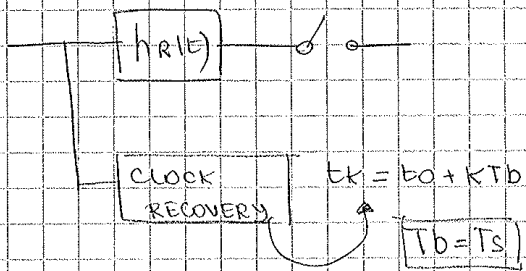 hR(t)
CLOCK
RECOVERY
tk = to + KTb
Tb = Ts